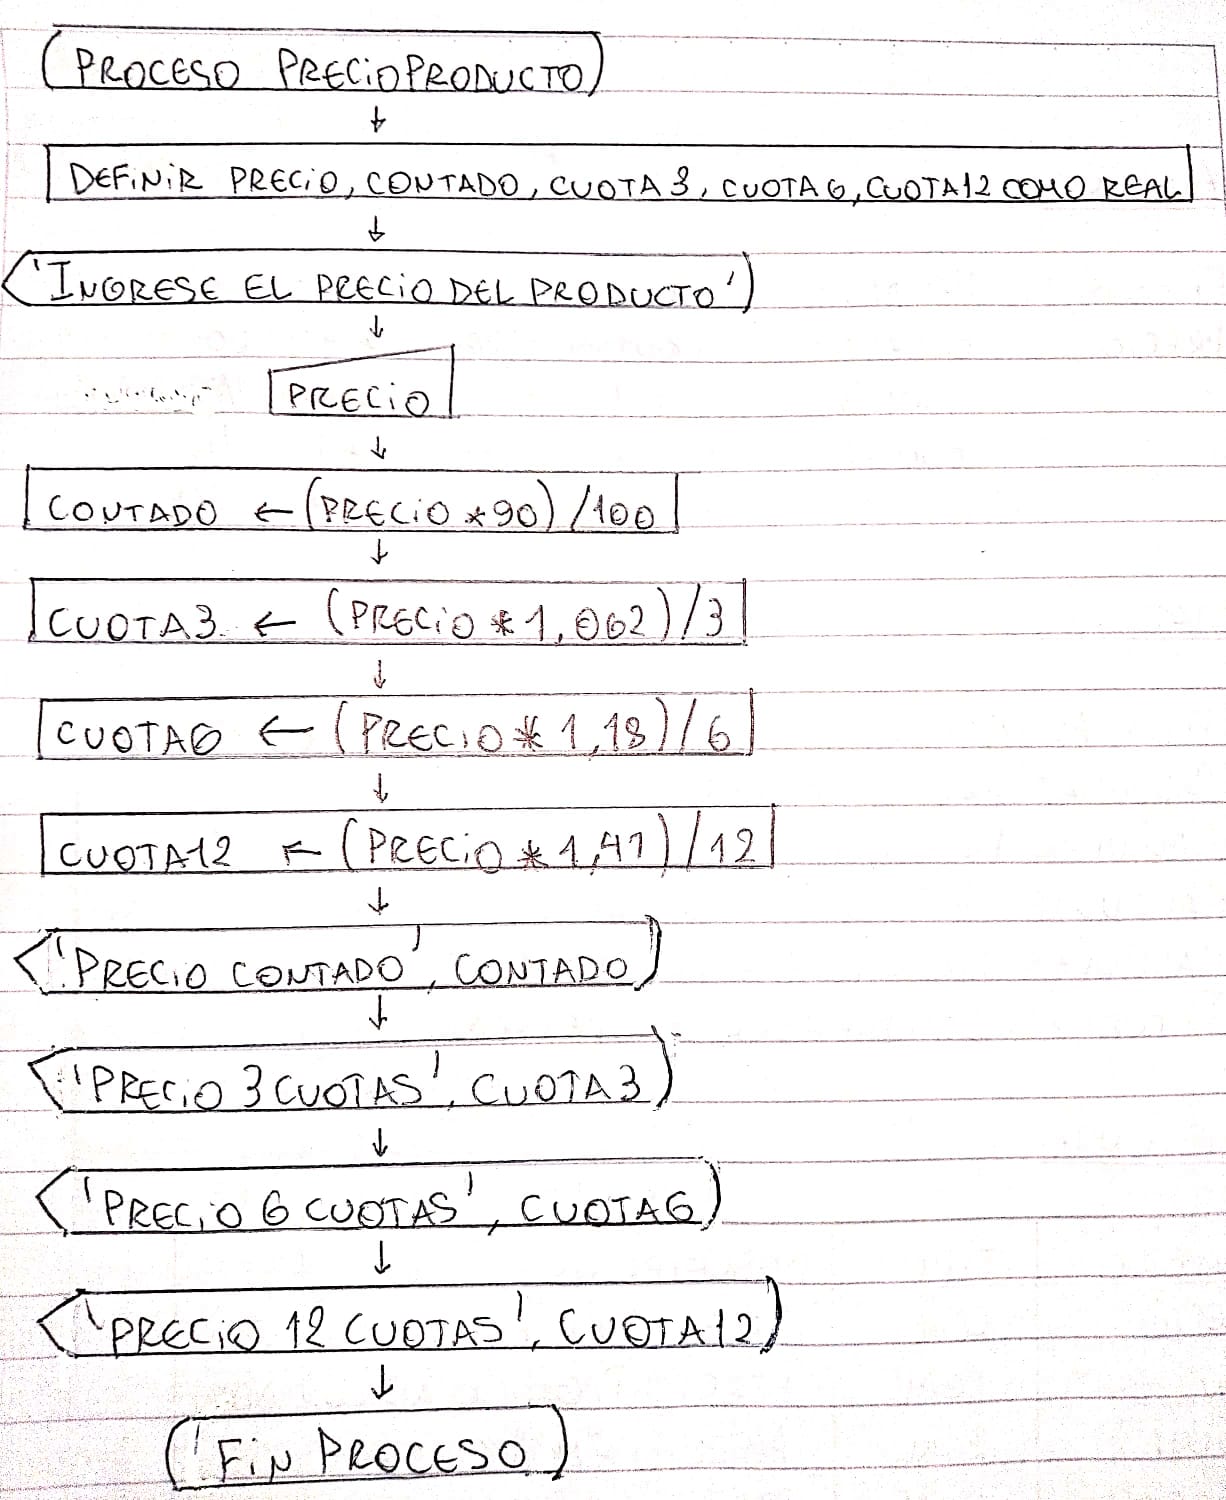 PROCESO PRECIOPRODUCTO
DEFINIR PRECIO, CONTADO, CUOTA3, CUOTA6, CUOTA12 COMO REAL
'INGRESE EL PRECIO DEL PRODUCTO'
PRECIO
CONTADO ← (PRECIO *90) /100
CUOTA3 ← (PRECIO * 1,062)/3
CUOTA6 ← (PRECIO * 1,18)/6
CUOTA12 ← (PRECIO * 1,41)/12
'PRECIO CONTADO', CONTADO
'PRECIO 3 CUOTAS', CUOTA3
'PRECIO 6 CUOTAS', CUOTA6
'PRECIO 12 CUOTAS', CUOTA12
FIN PROCESO